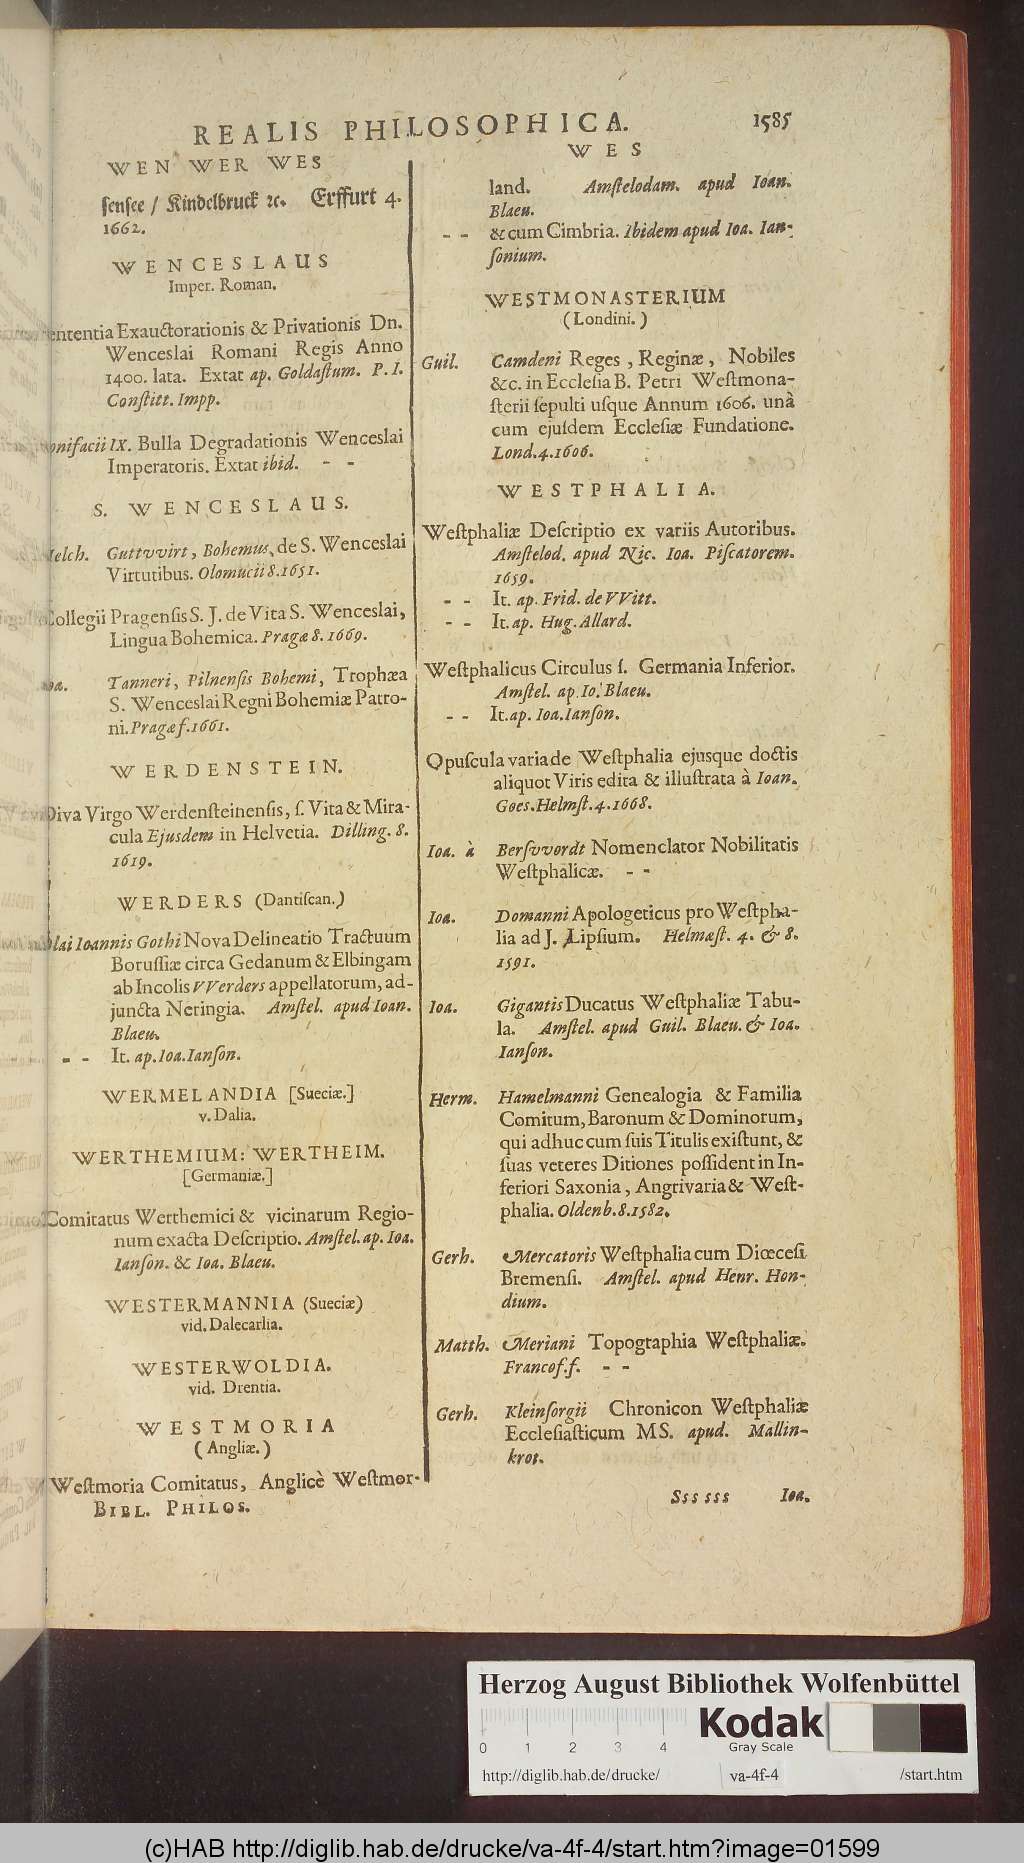 REALIS PHILOSOPHICA. 1585
WEN WER WES
ſenſee / Kindelbruck ꝛc. Erffurt 4.
1662.
WENCESLAUS
Imper. Roman.
ententia Exauctorationis & Privationis Dn.
Wenceslai Romani Regis Anno
1400. lata. Extat ap. Goldaſtum. P. I.
Conſtitt. Impp.
onifacii IX. Bulla Degradationis Wenceslai
Imperatoris. Extat ibid. - -
S. WENCESLAUS.
elch. Guttvvirt, Bohemus, de S. Wenceslai
Virtutibus. Olomucii 8. 1651.
Collegii Pragenſis S. J. de Vita S. Wenceslai,
Lingua Bohemica. Pragæ 8. 1669.
oa. Tanneri, Pilnenſis Bohemi, Trophæa
S. Wenceslai Regni Bohemiæ Patro-
ni. Pragæ f. 1661.
WERDENSTEIN.
Diva Virgo Werdenſteinenſis, ſ. Vita & Mira-
cula Ejusdem in Helvetia. Dilling. 8.
1619.
WERDERS (Dantiſcan.)
lai Ioannis Gothi Nova Delineatio Tractuum
Boruſſiæ circa Gedanum & Elbingam
ab Incolis VVerders appellatorum, ad-
juncta Neringia. Amſtel. apud Ioan.
Blaeu.
- - It. ap. Ioa. Ianſon.
WERMELANDIA [Sueciæ.]
v. Dalia.
WERTHEMIUM: WERTHEIM.
[Germaniæ.]
Comitatus Werthemici & vicinarum Regio-
num exacta Deſcriptio. Amſtel. ap. Ioa.
Ianſon. & Ioa. Blaeu.
WESTERMANNIA (Sueciæ)
vid. Dalecarlia.
WESTERWOLDIA.
vid. Drentia.
WESTMORIA
(Angliæ.)
Weſtmoria Comitatus, Anglicè Weſtmor-
BIBL. PHILOS.
WES
land. Amſtelodam. apud Ioan.
Blaeu.
- - & cum Cimbria. Ibidem apud Ioa. Ian-
ſonium.
WESTMONASTERIUM
(Londini.)
Guil. Camdeni Reges, Reginæ, Nobiles
&c. in Eccleſia B. Petri Weſtmona-
ſterii ſepulti uſque Annum 1606. unà
cum ejuſdem Eccleſiæ Fundatione.
Lond. 4. 1606.
WESTPHALIA.
Weſtphaliæ Deſcriptio ex variis Autoribus.
Amſtelod. apud Nic. Ioa. Piſcatorem.
1659.
- - It. ap. Frid. de VVitt.
- - It. ap. Hug. Allard.
Weſtphalicus Circulus ſ. Germania Inferior.
Amſtel. ap. Io. Blaeu.
- - It. ap. Ioa. Ianſon.
Opuſcula varia de Weſtphalia ejusque doctis
aliquot Viris edita & illuſtrata à Ioan.
Goes. Helmſt. 4. 1668.
Ioa. à Berſvvordt Nomenclator Nobilitatis
Weſtphalicæ. - -
Ioa. Domanni Apologeticus pro Weſtpha-
lia ad J. Lipſium. Helmæſt. 4. & 8.
1591.
Ioa. Gigantis Ducatus Weſtphaliæ Tabu-
la. Amſtel. apud Guil. Blaeu. & Ioa.
Ianſon.
Herm. Hamelmanni Genealogia & Familia
Comitum, Baronum & Dominorum,
qui adhuc cum ſuis Titulis exiſtunt, &
ſuas veteres Ditiones poſſident in In-
feriori Saxonia, Angrivaria & Weſt-
phalia. Oldenb. 8. 1582.
Gerh. Mercatoris Weſtphalia cum Diœceſi
Bremenſi. Amſtel. apud Henr. Hon-
dium.
Matth. Meriani Topographia Weſtphaliæ.
Francof. f. - -
Gerh. Kleinſorgii Chronicon Weſtphaliæ
Eccleſiaſticum MS. apud. Mallin-
krot.
Sss sss Ioa.
Herzog August Bibliothek Wolfenbüttel
Kodak
Gray Scale
0 1 2 3 4
http://diglib.hab.de/drucke/ va-4f-4 /start.htm
(c)HAB http://diglib.hab.de/drucke/va-4f-4/start.htm?image=01599